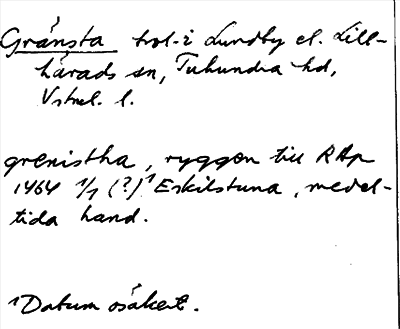 Gränsta trol. i Lundby el. Lill-
härads sn, Tuhundra hd,
Vstml. l.
grenistha, ryggen till RAp
1464 1/1 (?)¹ Eskilstuna, medel-
tida hand.
¹Datum osäkert.